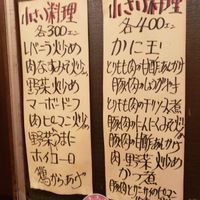 小さい料理
各300エン
レバーラ炒め
肉なす炒め
野菜炒め
マーボドーフ
肉ピーマン炒
野菜うま
ホイコーロ
鶏からあげ
小さい料理
各400エン
かに玉
とりもも肉の甘酢あんかけ
豚肉の
とりもも肉のチリソース煮
豚肉のにんにくみそ炒
豚肉の甘酢あんかけ
肉野菜炒め
かつ煮
豚肉と